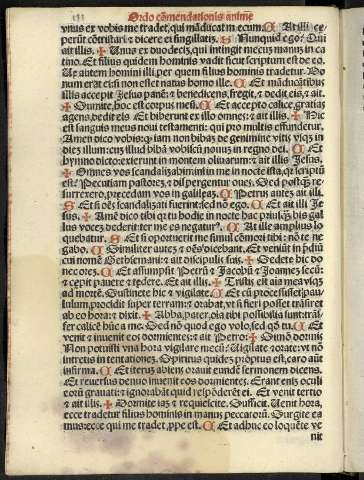 Ordo cōmendationis anime
vnus ex vobis me tradet, qui māducat mecum. At illi ce
perūt cōtristari: & dicere ei singillatim. Nunquid ego? Qui
ait illis. Unus ex duodecī, qui intingit mecū manū in ca
tino. Et filius quidem hominis vadit sicut scriptum est de eo.
Ue autem homini illi, per quem filius hominis tradetur. Bo
num erat ei: si non esset natus homo ille. Et māducātibus
illis accepit Jesus panē: & benedicens, fregit, & dedit eis, & ait.
Sumite, hoc est corpus meū. Et accepto calice, gratias
agens, dedit eis. Et biberunt ex illo omnes: & ait illis. Hic
est sanguis meus noui testamenti: qui pro multis effundetur.
Amen dico vobis: q iam non bibā de genimine vitis vsq3 in
diem illum: cum illud bibā vobiscū nouū in regno dei. Et
hymno dicto: exierunt in montem oliuarum: & ait illis Jesus.
Omnes vos scandalizabimini in me in nocte ista, qr scriptū
est: Percutiam pastorē, & dispergentur oues. Sed postq3 re
surrexero, precedam vos in galileā. Petrus autem ait illi.
Et si oēs scandalizati fuerint: sed nō ego. Et ait illi Je
sus. Amē dico tibi qr tu hodie in nocte hac priusq3 bis gal
lus vocē dederit: ter me es negatur9. At ille amplius lo
quebatur. Et si oportuerit me simul cōmori tibi: nō te ne
gabo. Similiter autē & oēs dicebant. Et veniūt in pdiū
cui nomē Gethsemani: & ait discipulis suis. Sedete hic do
nec orem. Et assumpsit Petrū & Jacobū & Joannem secū:
& cepit pauere & tedere. Et ait illis. Tristis est aīa mea vsq3
ad mortē. Sustinete hic & vigilate. Et cū processisset pau
lulum, procidit super terram: & orabat, vt si fieri posset trāsiret
ab eo hora: & dixit. Abba, pater, oīa tibi possibilia sunt: trās
fer calicē hūc a me. Sed nō quod ego volo, sed qd tu. Et
venit & inuenit eos dormientes: & ait Petro: Simō dormis
Non potuisti vna hora vigilare mecū: Uigilate & orate: vt nō
intretis in tentationem. Spiritus quidē pmptus est, caro aūt
infirma. Et iterū abiens orauit eundē sermonem dicens.
Et reuersus denuo inuenit eos dormientes. Erant enīs oculi
eorū grauati: & ignorabāt quid respōderēt ei. Et venit tertio
& ait illis. Dormite iā & requiescite. Sufficit. Uenit hora,
ecce tradetur filius hominis in manus peccatorū. Surgite ea
mus: ecce qui me tradet, ppe est. Et adhuc eo loquēte ve
nit